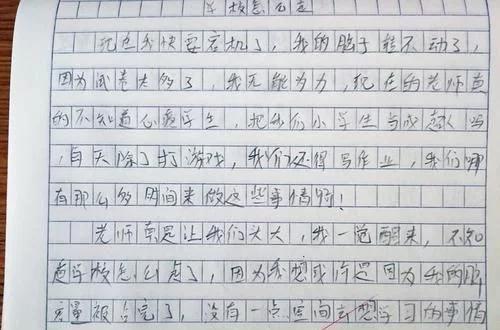 学校怎么走
现在我快要宕机了，我的脑子转不动了，
因为试卷太多了，我无能为力，现在的老师真
的不知道心疼学生，把我们小学生当成超人吗
，每天除了打游戏，我们还得写作业，我们哪
有那么多时间来做这些事情哟！
老师总是让我们头大，我一觉醒来，不知
道学校怎么走了，因为我想或许是因为我的脑
容量被占完了，没有一点空间去想学习的事情